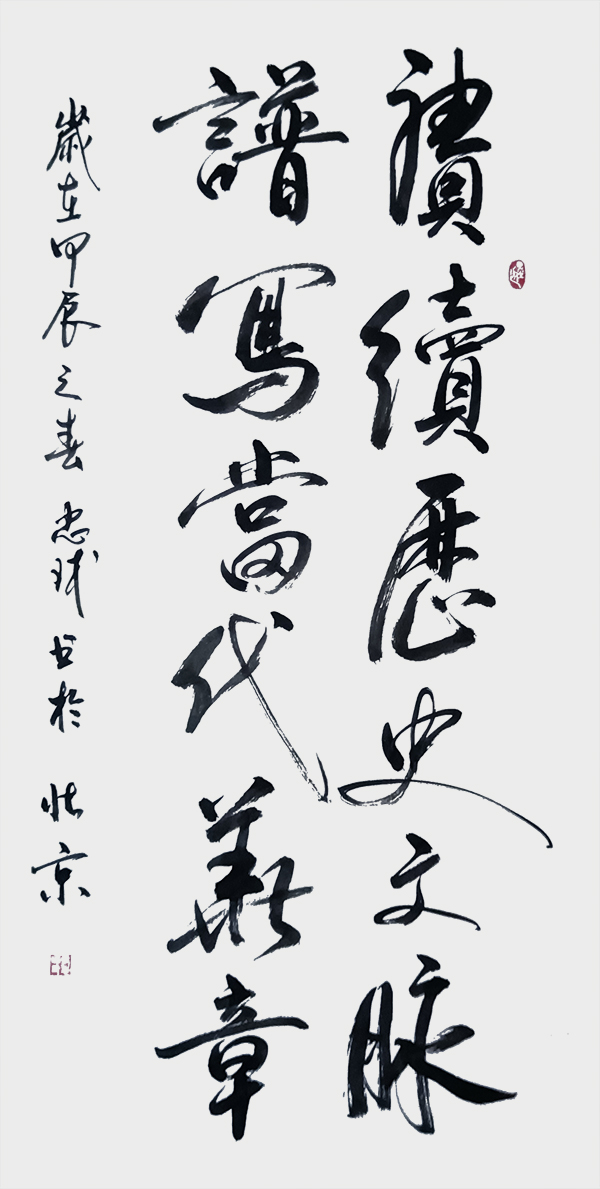 賡續歷史文脈
譜寫當代華章
歲在甲辰之春 忠 书於 北京